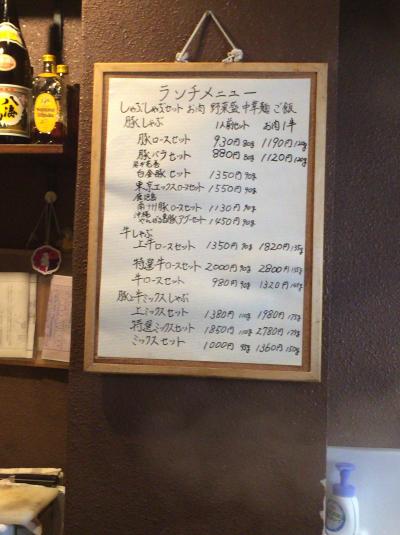 ランチメニュー
しゃぶしゃぶセット お肉 野菜盛 中華麺 ご飯
豚しゃぶ 1人前セット お肉1半
豚ロースセット 930円 80g 1190円 120g
豚バラセット 880円 80g 1120円 120g
白金豚セット 1350円 90g
東京エックスロースセット 1550円 90g
鹿児島
南州豚ロースセット 1130円 90g
沖縄
やんばる島豚アグーセット 1450円 90g
牛しゃぶ
上牛ロースセット 1350円 90g 1820円 135g
特選牛ロースセット 2000円 90g 2800円 135g
牛ロースセット 980円 90g 1320円
豚と牛ミックスしゃぶ
上ミックスセット 1380円 110g 1980円 175g
特選ミックスセット 1850円 110g 2780円 175g
ミックスセット 1000円 1360円 150g
八海山